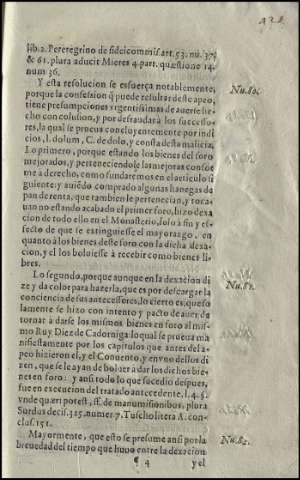 428
lib. 2. Pereregrino de fideicommis. art. 53. nu. 37.
& 61. plura aducit Mieres 4. part. quæstione 14.
num 36.
Y esta resolucion se esfuerça notablemente,
porque la confession q̃ puede resultar deste apeo,
tiene presumpciones vrgentissimas de auerse he-
cho con colusion, y por defraudar à los successo-
res, la qual se procus concluyentemente por indi
cios, l. dolum, C. de dolo, y consta desta malicia,
Lo primero, porque estando los bienes del foro
mejorados, y perteneciendole las mejoras confor
me a derecho, como fundaremos en el articulo si
guiente: y auiẽdo comprado algunas hanegas de
pan de renta, que tambien le pertenecian, y toca-
uan no estando acabado el primer foro, hizo dexa
cion de todo ello en el Monasterio, solo à fin y es-
fecto de que se estinguiesse el mayorazgo, en
quanto à los bienes deste foro con la dicha dexa-
cion, y el los boluiesse à recebir como bienes li-
bres.
Lo segundo, porque aunque en la dexacion di
ze y da color para hazerla, que es por descargar la
conciencia de sus antecessores, lo cierto es, que so
lamente se hizo con intento y pacto de auer de
tornar à darse los mismos bienes en foro al mis-
mo Ruy Diez de Cadorniga, lo qual se prueua ma
nifiestamente por los capitulos que antes del a-
peo hizieron el, y el Conuento, y en vno dellos di
zen, que se le ayan de boluer a dar los dichos bie-
nes en foro: y ansi todo lo que sucedio despues,
fue en execucion del tratado antecedente, l. 4. §.
vnde quæri potest, ff. de manumissionibus, plura
Surdus decis. 325. numer. 7. Tuscholitera A. con-
clus. 151.
Mayormente, que esto se presume ansi por la
breuedad del tiempo que huuo entre la dexacion
¶ 4 yel
Nu. 80.
Nu. 81.
Nu. 82.